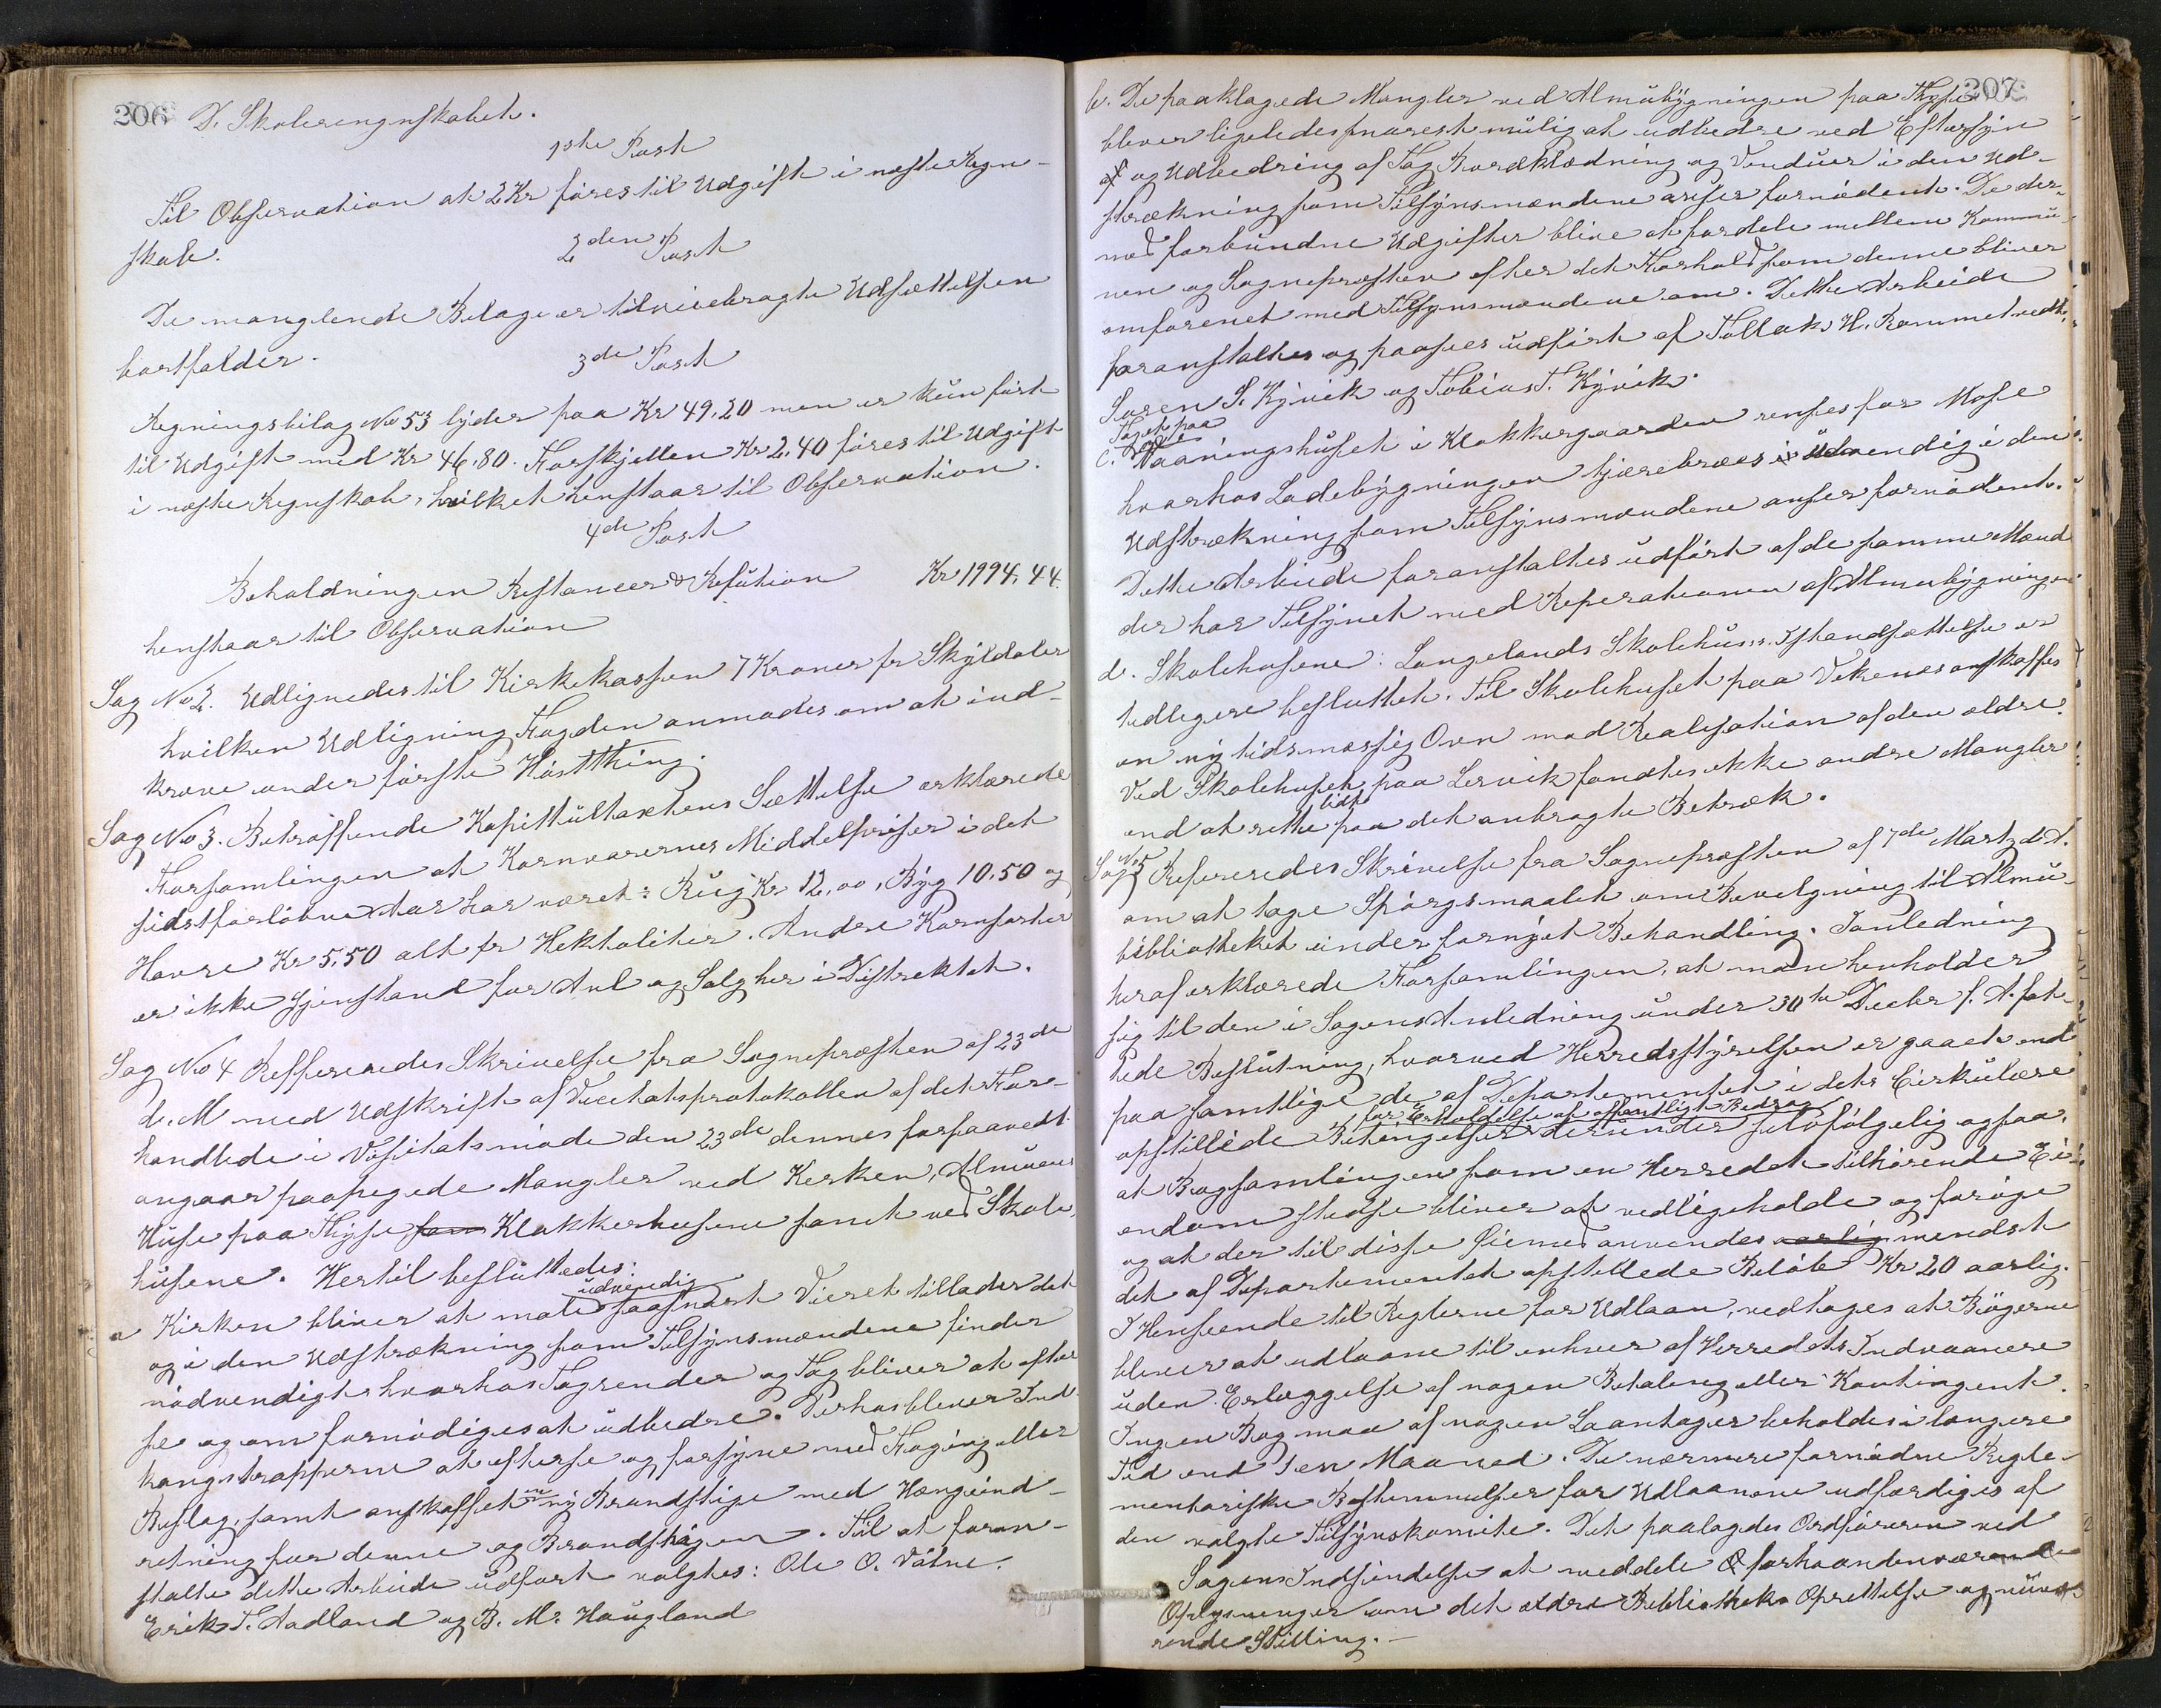 206
D. Skoleregnskabet.
1ste Post
Til Observation at 2 Kr føres til Udgift i næste Regn-
skab.
2den Post
De manglende Bilage er tilveiebragte Udsættelsen
bortfalder.
3de Post
Regningsbilag No 53 lyder paa Kr 49,20 men er kun ført
til Udgift med Kr 46,80. Forskjellen Kr 2,40 føres til Udgift
i næste Regnskab, hvilket henstaar til Observation.
4de Post
Beholdningen Restancer & Refution Kr 1994,44.
henstaar til Observation
Sag No 2. Udlignedes til Kirkekassen 7 Kroner pr Skylddaler
hvilken Udligning Fogden anmodes om at ind-
kræve under første Høstthing.
Sag No 3. Betræffende Kapittultaxtens Sættelse erklærede
Forsamlingen at Kornvarernes Middelpriser i det
sidstforløbne Aar har været: Rug Kr 12,00, Byg 10.50 og
Havre Kr 5,50 alt pr Hektoliter. Andre Kornsorter
er ikke Gjenstand for Avl og Salg her i Distrektet.
Sag No 4 Reffereredes Skrivelse fra Sognepræsten af 23de
d. M med Udskrift af Visitatsprotokollen af det For-
handlede i Visitatsmøde den 23de dennes forsaavedt
angaar paapegede Mangler ved Kirken, Almuens
Huse paa Thyse som Klokkerhusene samt ved Skole-
husene. Hertil besluttedes:
a Kirken bliver at male udvendig saasnart Veiret tillader det
og i den Udstrækning som Tilsynsmændene finder
nødvendigt hvorhos Tagrender og Tag bliver at efter
se og om fornødiges at udbedre. Derhos bliver Ind-
gangstrapperne at efterse og forsyne med Fuging eller
Beslag, samt anskaffet en ny Brandstige med Hængeind-
retning for denne og Brandshagen. Til at foran-
stalte dette Arbeide udført valgtes: Ole O. Våtne.
Erik T. Aadland og B. M. Haugland
207
b. De paaklagede Mangler ved Almubygningen paa Thyse
bliver ligeledes snarest mulig at udbedre ved Eftersyn
af og Udbedring af Tag Bordklædning og Vinduer i den Ud-
strækning som Tilsynsmændene anser fornødent. De der-
med forbundne Udgifter blive at fordele mellem Kommu-
nen og Sognepræsten efter det Forhold som denne bliver
omforenet med Tilsynsmændene om. Dette Arbeide
foranstaltes og paasees udført af Tollak H. Rommetvedt,
Søren S. Kyvik og Tobias T. Kyvik.
c. Taget paa Vaaningshuset i Klokkergaarden renses for Mose
hvorhos Ladebygningen tjærebrædes i udvendig i den
Udstrækning som Tilsynsmændene anser fornødent.
Dette Arbeide foranstaltes udført af de samme Mænd
der har Tilsynet med Reperationen af Almubygningen
d. Skolehusene: Langelands Skolehuses Istandsættelse er
tidligere besluttet. Til Skolehuset paa Vikenes anskaffes
en ny tidsmæssig Ovn mod Realisation af den ældre.
Ved Skolehuset paa Lervik fandtes ikke andre Mangler
end at rette lidt paa det anbragte Betræk.
Sag No 5 Refereredes Skrivelse fra Sognepræsten af 7de Marts d. A.
om at tage Spørgsmaalet om Bevilgning til Almu-
bibliotheket under fornyet Behandling. I anledning
heraf erklærede Forsamlingen, at man henholder
sig til den i Sagens Anledning under 30te Decber f. A. fat-
tede Beslutning, hvorved Herredsstyrelsen er gaaet ind
paa samtlige de af Departementet i dets Cirkulære
opstillede Betingelser for Erholdelse af offentligt Bidrag derunder selvfølgelig ogsaa,
at Bogsamlingen som en Herredet tilhørende Ei-
endom stedse bliver at vedligeholde og forøge
og at der til disse Øiemed anvendes aarlig mindst
det af Departementet opstillede Beløb Kr 20 aarlig.
I Henseende til Reglerne for Udlaan, vedtoges at Bøgerne
bliver at udlaane til enhver af Herredets Indvaanere
uden Erlæggelse af nogen Betaling eller Kontingent.
Ingen Bog maa af nogen Laantager beholdes i længere
Tid end 1 en Maaned. De nærmere fornødne Regle-
mentariske Bestemmelser for Udlaanene udfærdiges af
den valgte Tilsynskomite. Det paalagdes Ordføreren ved
Sagens Indsendelse at meddele forhaandenværende
Oplysninger om det ældre Bibliotheks Oprettelse og nuvæ-
rende Stilling.—